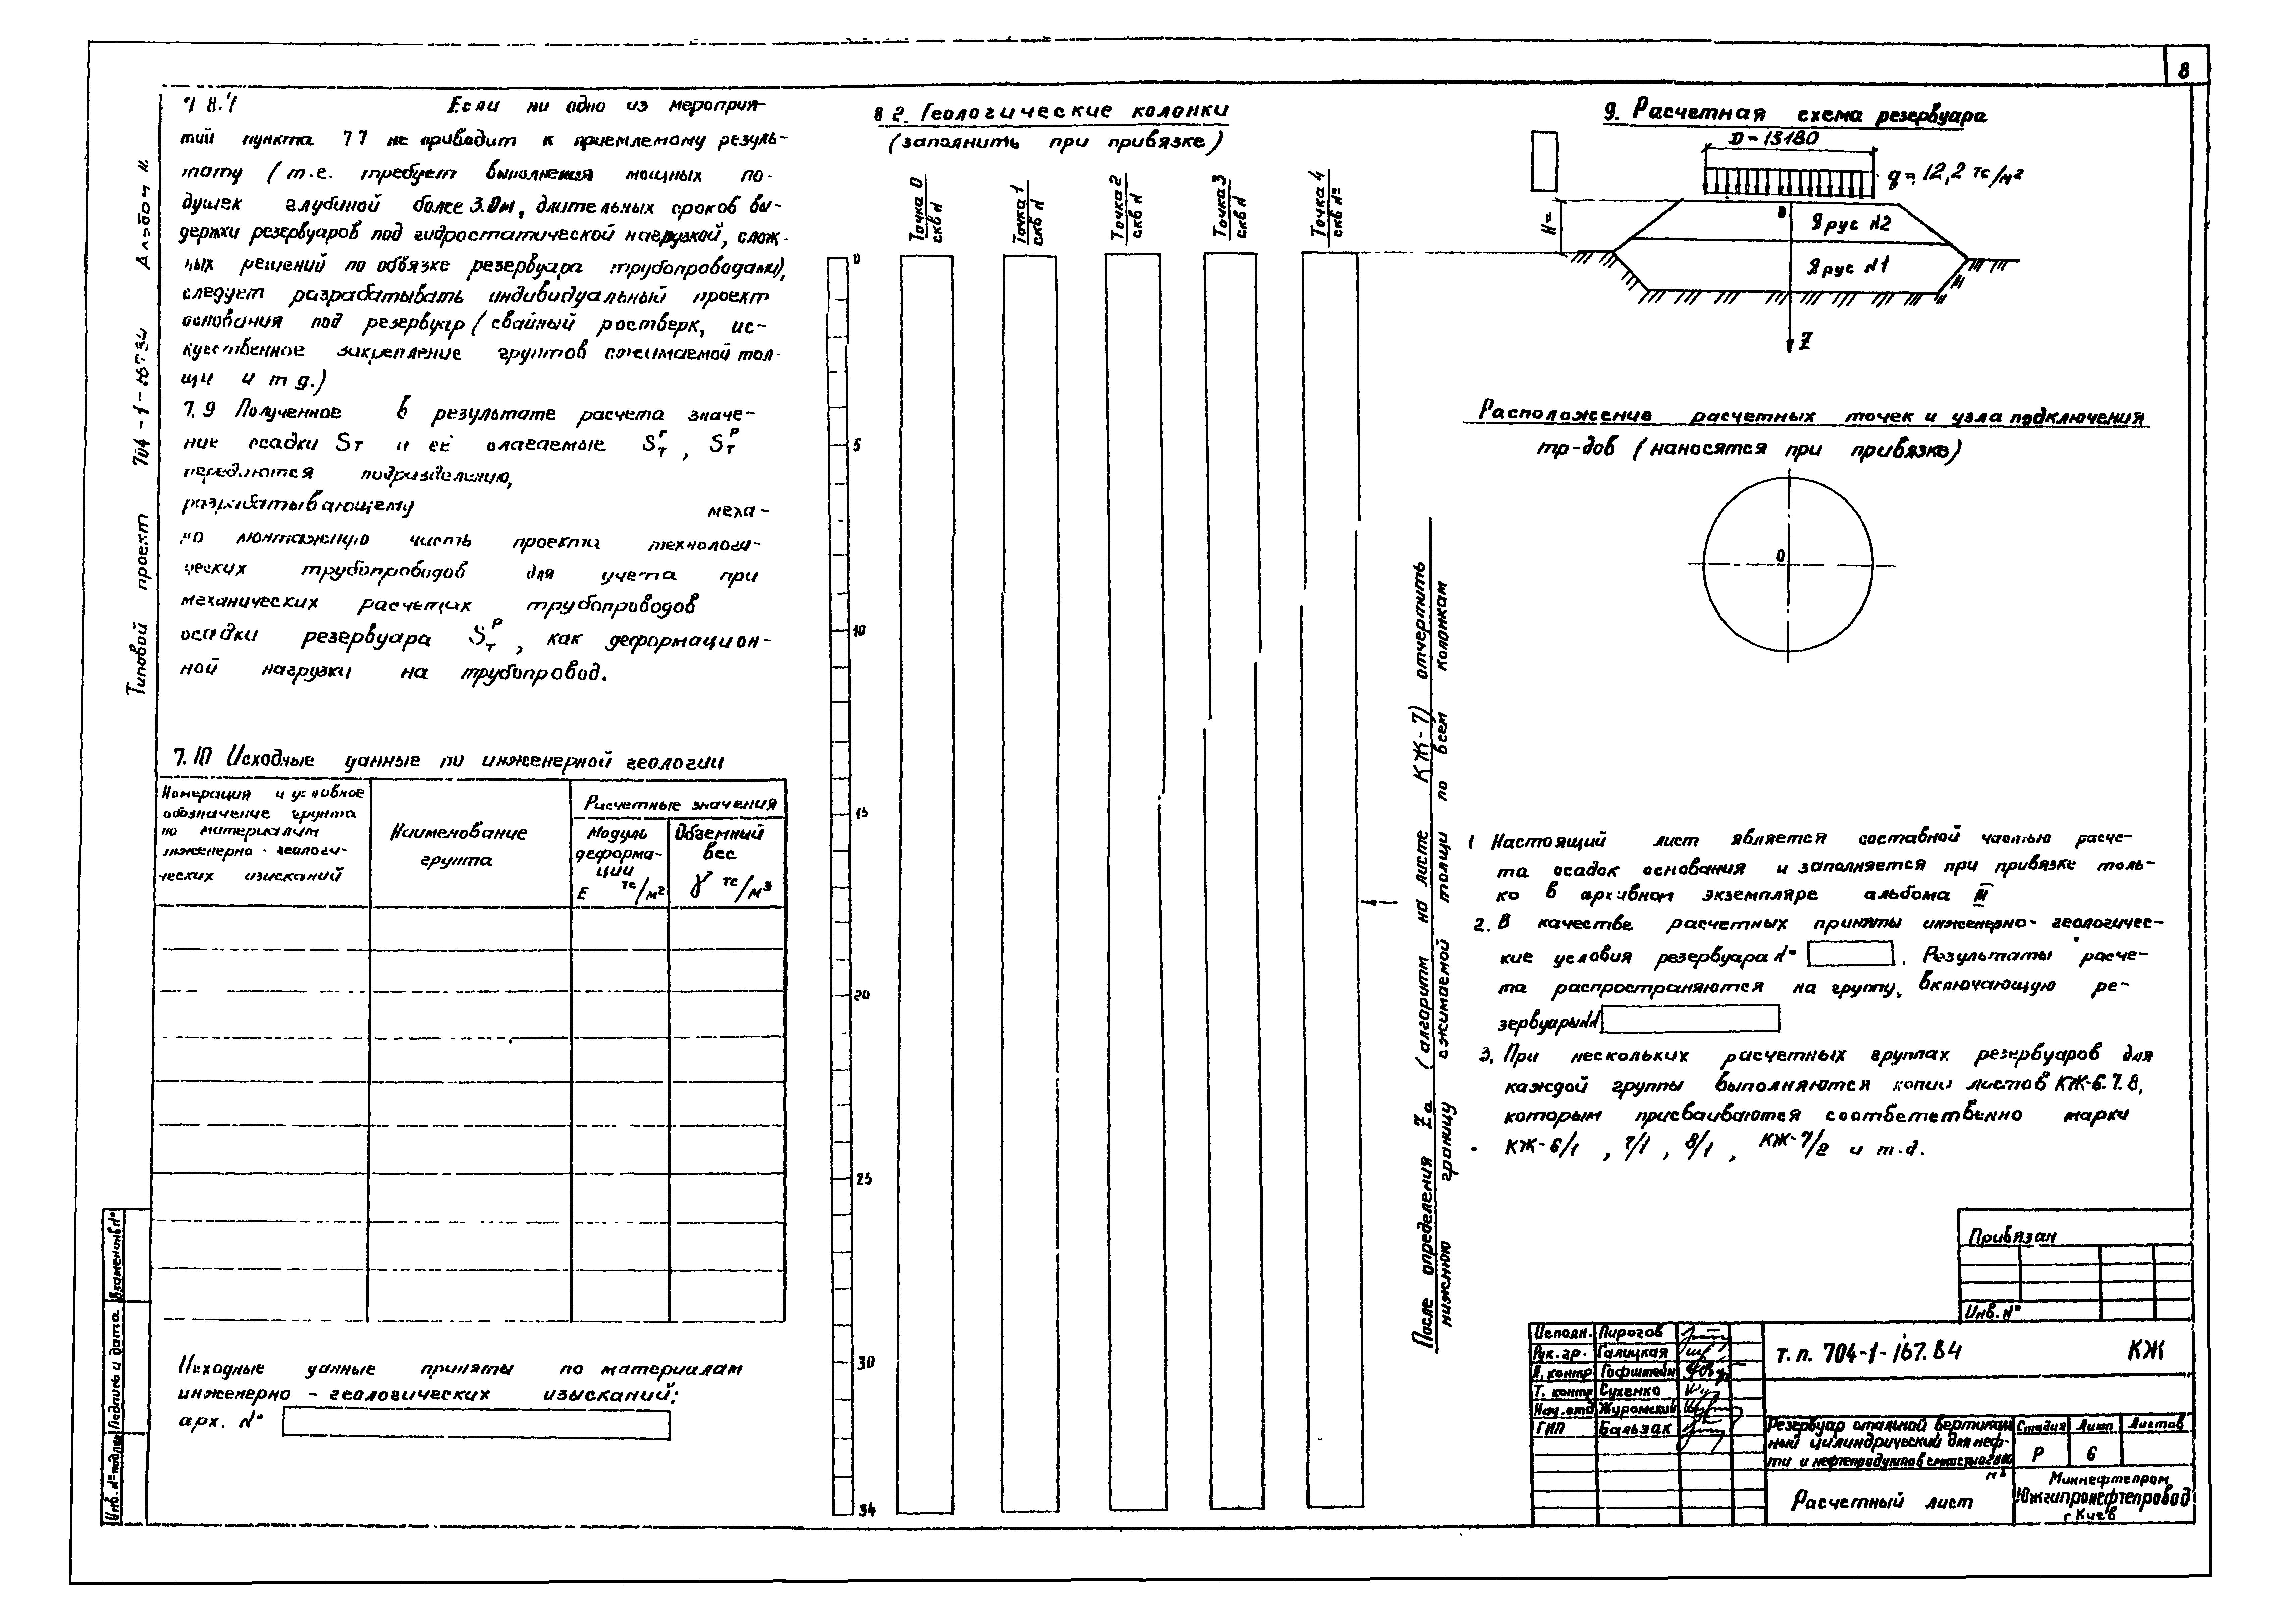 8
Типовой проект 704-1-167.84 Альбом II
7.8. Если ни одно из мероприя-
тий пункта 7.7 не приводит к приемлемому резуль-
тату (т.е. требует выполнения мощных по-
душек глубиной более 3.0м, длительных сроков вы-
держки резервуаров под гидростатической нагрузкой, слож-
ных решений по обвязке резервуара трубопроводами),
следует разрабатывать индивидуальный проект
основания под резервуар (свайный ростверк, ис-
куственное закрепление грунтов сжимаемой тол-
щи и т д.)
7.9 Полученное в результате расчета значе-
ние осадки Sт и её слагаемые Sтг, Sтр
передаются подразделению,
разрабатывающему меха-
но монтажную часть проекта технологи-
ческих трубопроводов для учета при
механических расчетах трубопроводов
осадки резервуара Sтр, как деформацион-
ной нагрузки на трубопровод.
7.10 Исходные данные по инженерной геологии
Номерация и условное
обозначение грунта
по материалам
инженерно-геологи-
ческих изысканий
Наименование
грунта
Расчетные значения
Модуль
деформа-
ции
E тс/м²
Обземный
вес
γ тс/м³
Исходные данные приняты по материалам
инженерно-геологических изысканий:
арх. №
8 2. Геологические колонки
(заполнить при привязке)
Точка 0
скв N
Точка 1
скв N
Точка 2
скв N
Точка 3
скв N
Точка 4
скв №
0
5
10
15
20
25
30
34
После определения Zа (алгоритм на листе КЖ-7) отчертить
нижнюю границу сжимаемой толщи по всем колонкам
9. Расчетная схема резервуара
D=15180
q=12,2 тс/м²
H=
0
Ярус N2
Ярус N1
Z
Расположение расчетных точек и узла подключения
тр-дов (наносятся при привязке)
0
1 Настоящий лист является составной частью расче-
та осадок основания и заполняется при привязке толь-
ко в архивном экземпляре альбома III
2. В качестве расчетных приняты инженерно-геологичес-
кие условия резервуара №. Результаты расче-
та распространяются на группу, включающую ре-
зервуары NN
3. При нескольких расчетных группах резервуаров для
каждой группы выполняются копии листов КЖ-6.7.8,
которым присваиваются соответственно марки
КЖ-6/1, 7/1, 8/1, КЖ-7/2 и т.д.
Привязан
Инв. №
Исполн. Пирогов
Рук.гр. Галицкая
Н. контр Гофштейн
Т. контр Сухенко
Нач.отд Журомский
ГИП Бальзак
т.п. 704-1-167.84 КЖ
Резервуар стальной вертикаль
ный цилиндрический для неф-
ти и нефтепродуктов емкостью
м³
Стадия Лист Листов
Р 6
Расчетный лист
Миннефтепром
Южгипронефтепровод
г Киев
Взамен инв.№
Подпись и дата
Инв. № подл.